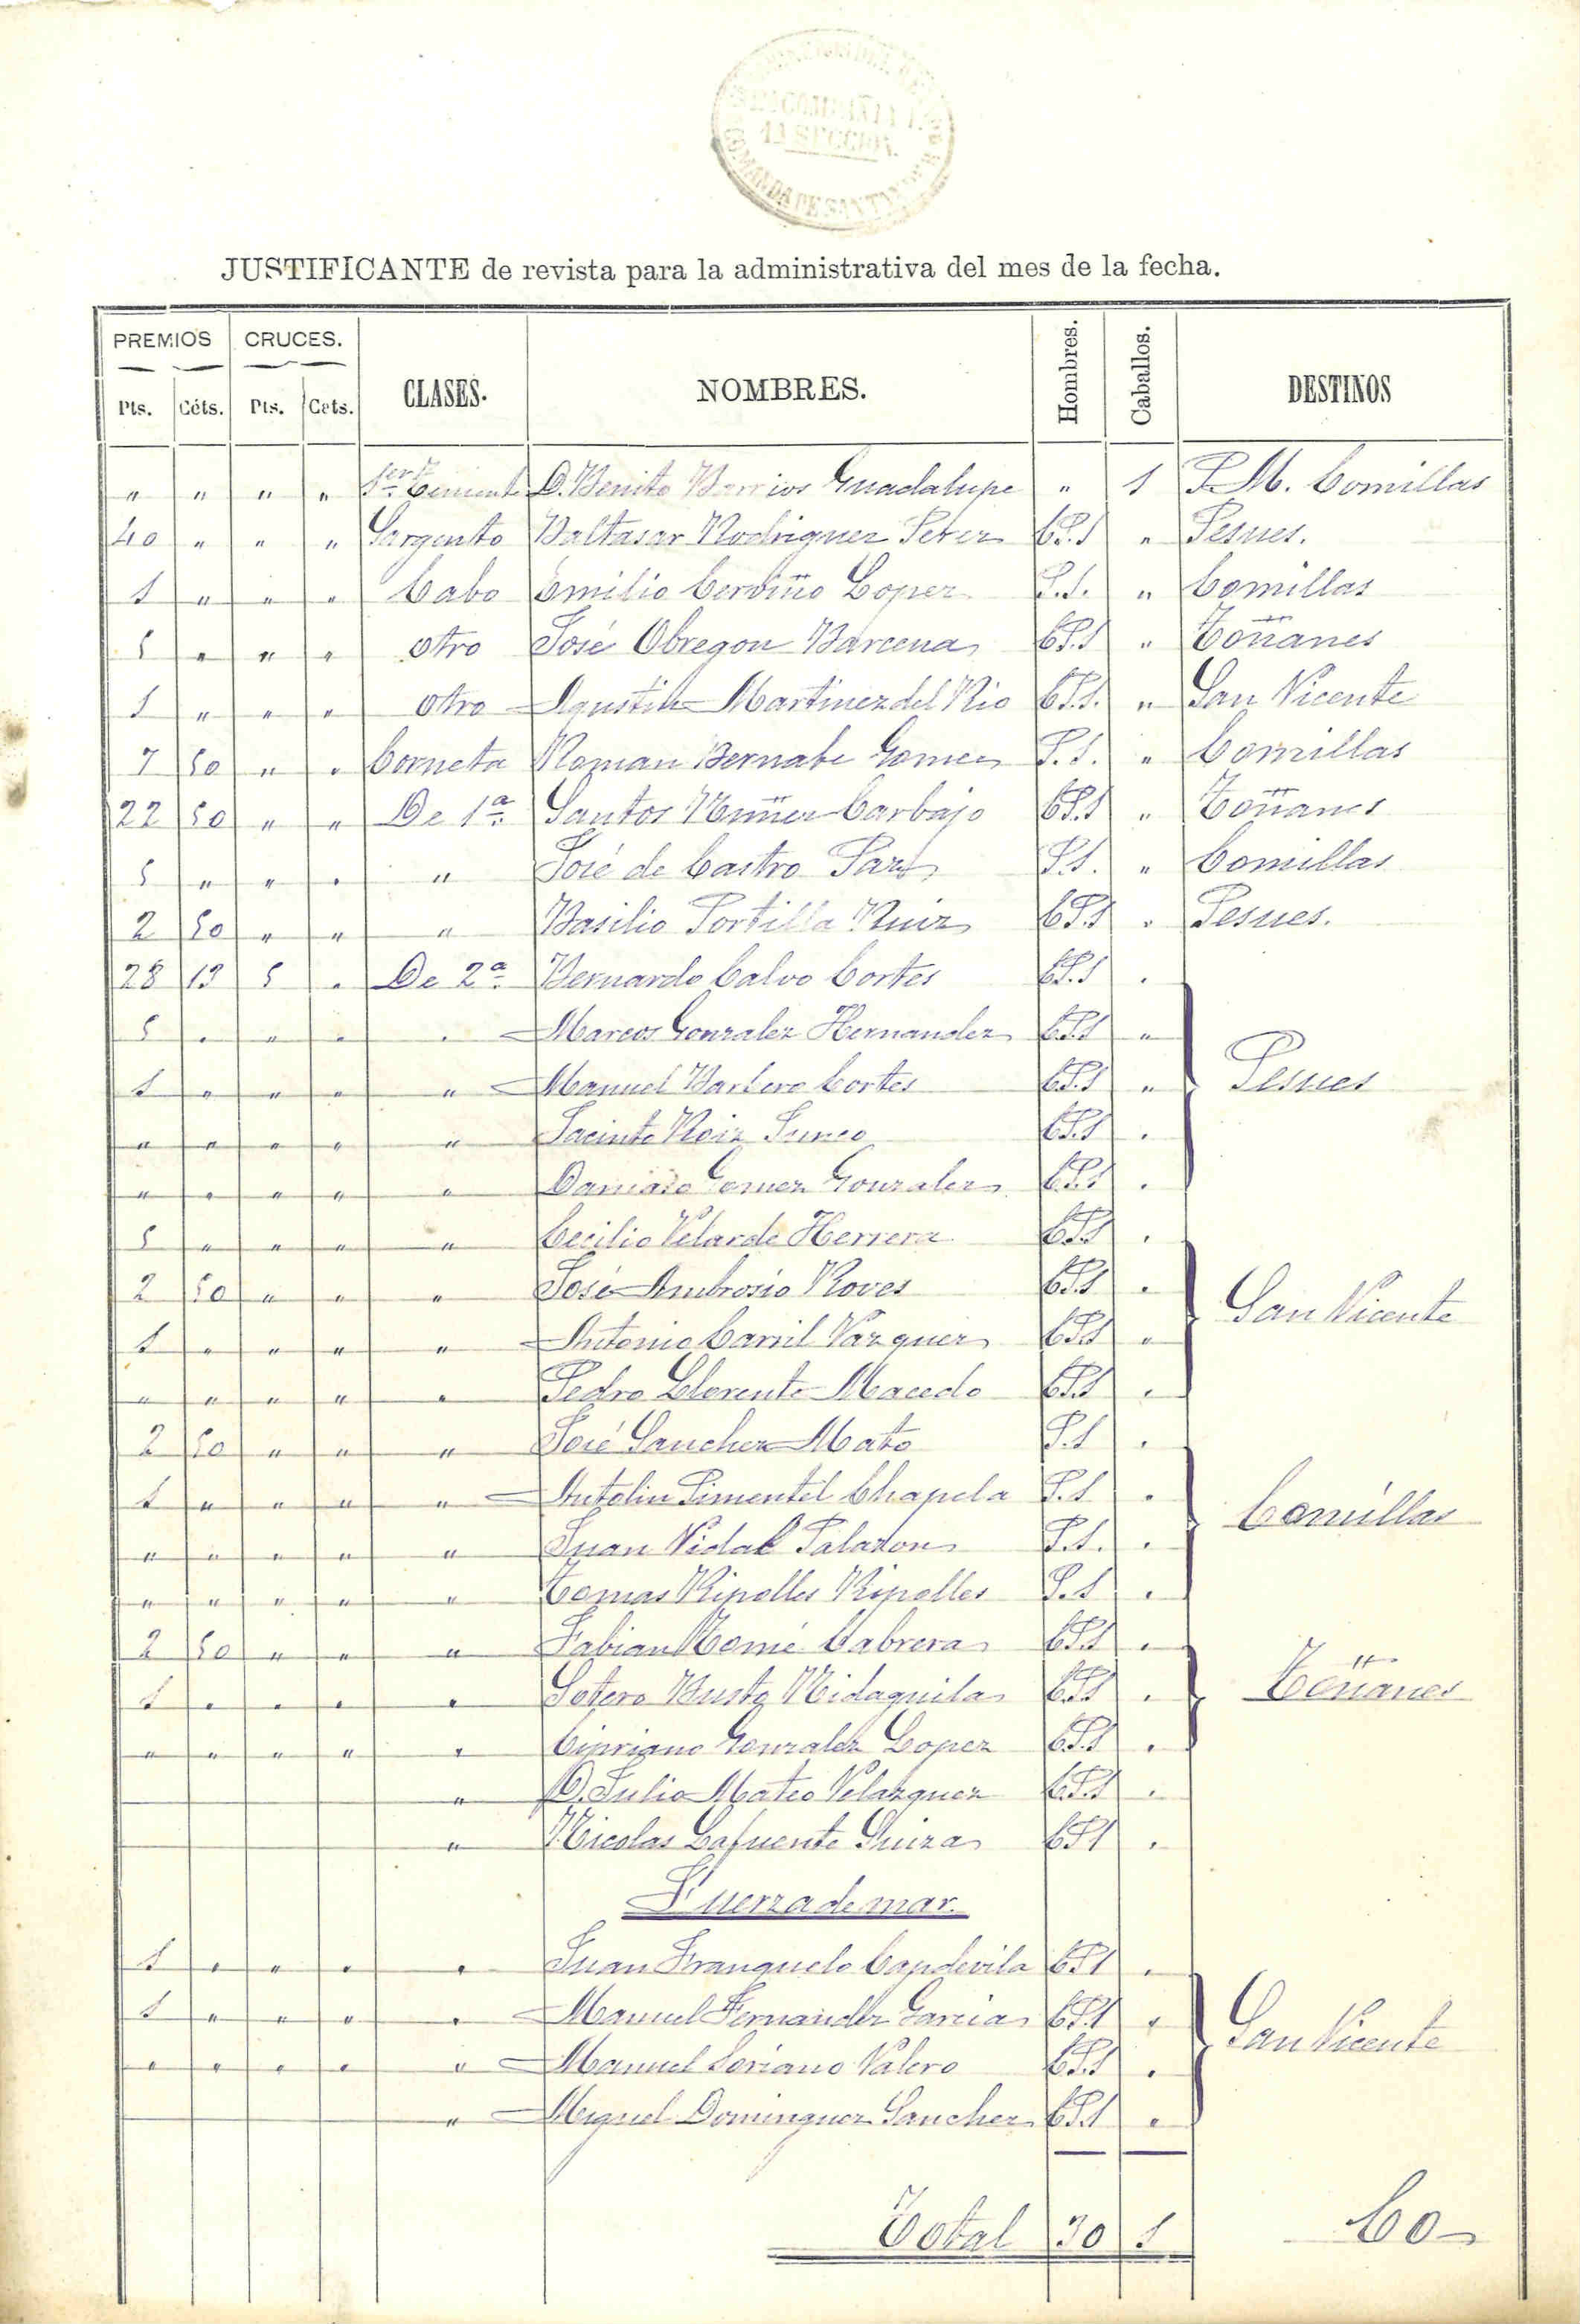 COMPAÑIA
1A SECCION.
COMANDA DE SANTANDER
JUSTIFICANTE de revista para la administrativa del mes de la fecha.
PREMIOS CRUCES. CLASES. NOMBRES. Hombres. Caballos. DESTINOS
Pts. Céts. Pts. Cets.
" " " " 1er Teniente D. Benito Barrios Guadalupe " 1 P.M. Comillas
40 " " " Sargento Baltasar Rodriguez Perez CP.S " Pesues.
1 " " " Cabo Emilio Cerviño Lopez P.S. " Comillas
5 " " " otro José Obregon Barcena CP.S " Toñanes
1 " " " otro Agustin Martinez del Rio CP.S. " San Vicente
7 50 " " Corneta Roman Bernabe Gomez P.S. " Comillas
22 50 " " De 1ª Santos Nuñez Carbajo CP.S " Toñanes
5 " " " " José de Castro Paz P.S. " Comillas
2 50 " " " Basilio Portilla Ruiz CP.S " Pesues.
28 13 5 " De 2ª Bernardo Calvo Cortes CP.S "
5 " " " " Marcos Gonzalez Hernandez CP.S "
1 " " " " Manuel Barbero Cortes CP.S " Pesues
" " " " " Jacinto Roiz Junco CP.S "
" " " " " Damaso Gomez Gonzalez CP.S "
5 " " " " Cecilio Velarde Herrera CP.S "
2 50 " " " José Ambrosio Roves CP.S " San Vicente
1 " " " " Antonio Carril Vazquez CP.S "
" " " " " Pedro Llorente Macedo CP.S "
2 50 " " " José Sanchez Mato P.S "
1 " " " " Antolin Pimentel Chapela P.S " Comillas
" " " " " Juan Vidal Palazon P.S. "
" " " " " Tomas Ripolles Ripolles P.S "
2 50 " " " Fabian Tomé Cabrera CP.S "
1 " " " " Sotero Busto Ridaguila CP.S " Toñanes
" " " " " Cipriano Gonzalez Lopez CP.S "
" D. Julio Mateo Velazquez CP.S "
" Nicolas Lafuente CP.S "
Fuerza de mar.
1 " " " " Juan Franquelo Capdevila CP.S "
1 " " " " Manuel Fernandez Garcia CP.S " San Vicente
" " " " " Manuel Soriano Valero CP.S "
" Miguel Dominguez Sanchez CP.S "
Total 30 1 Co